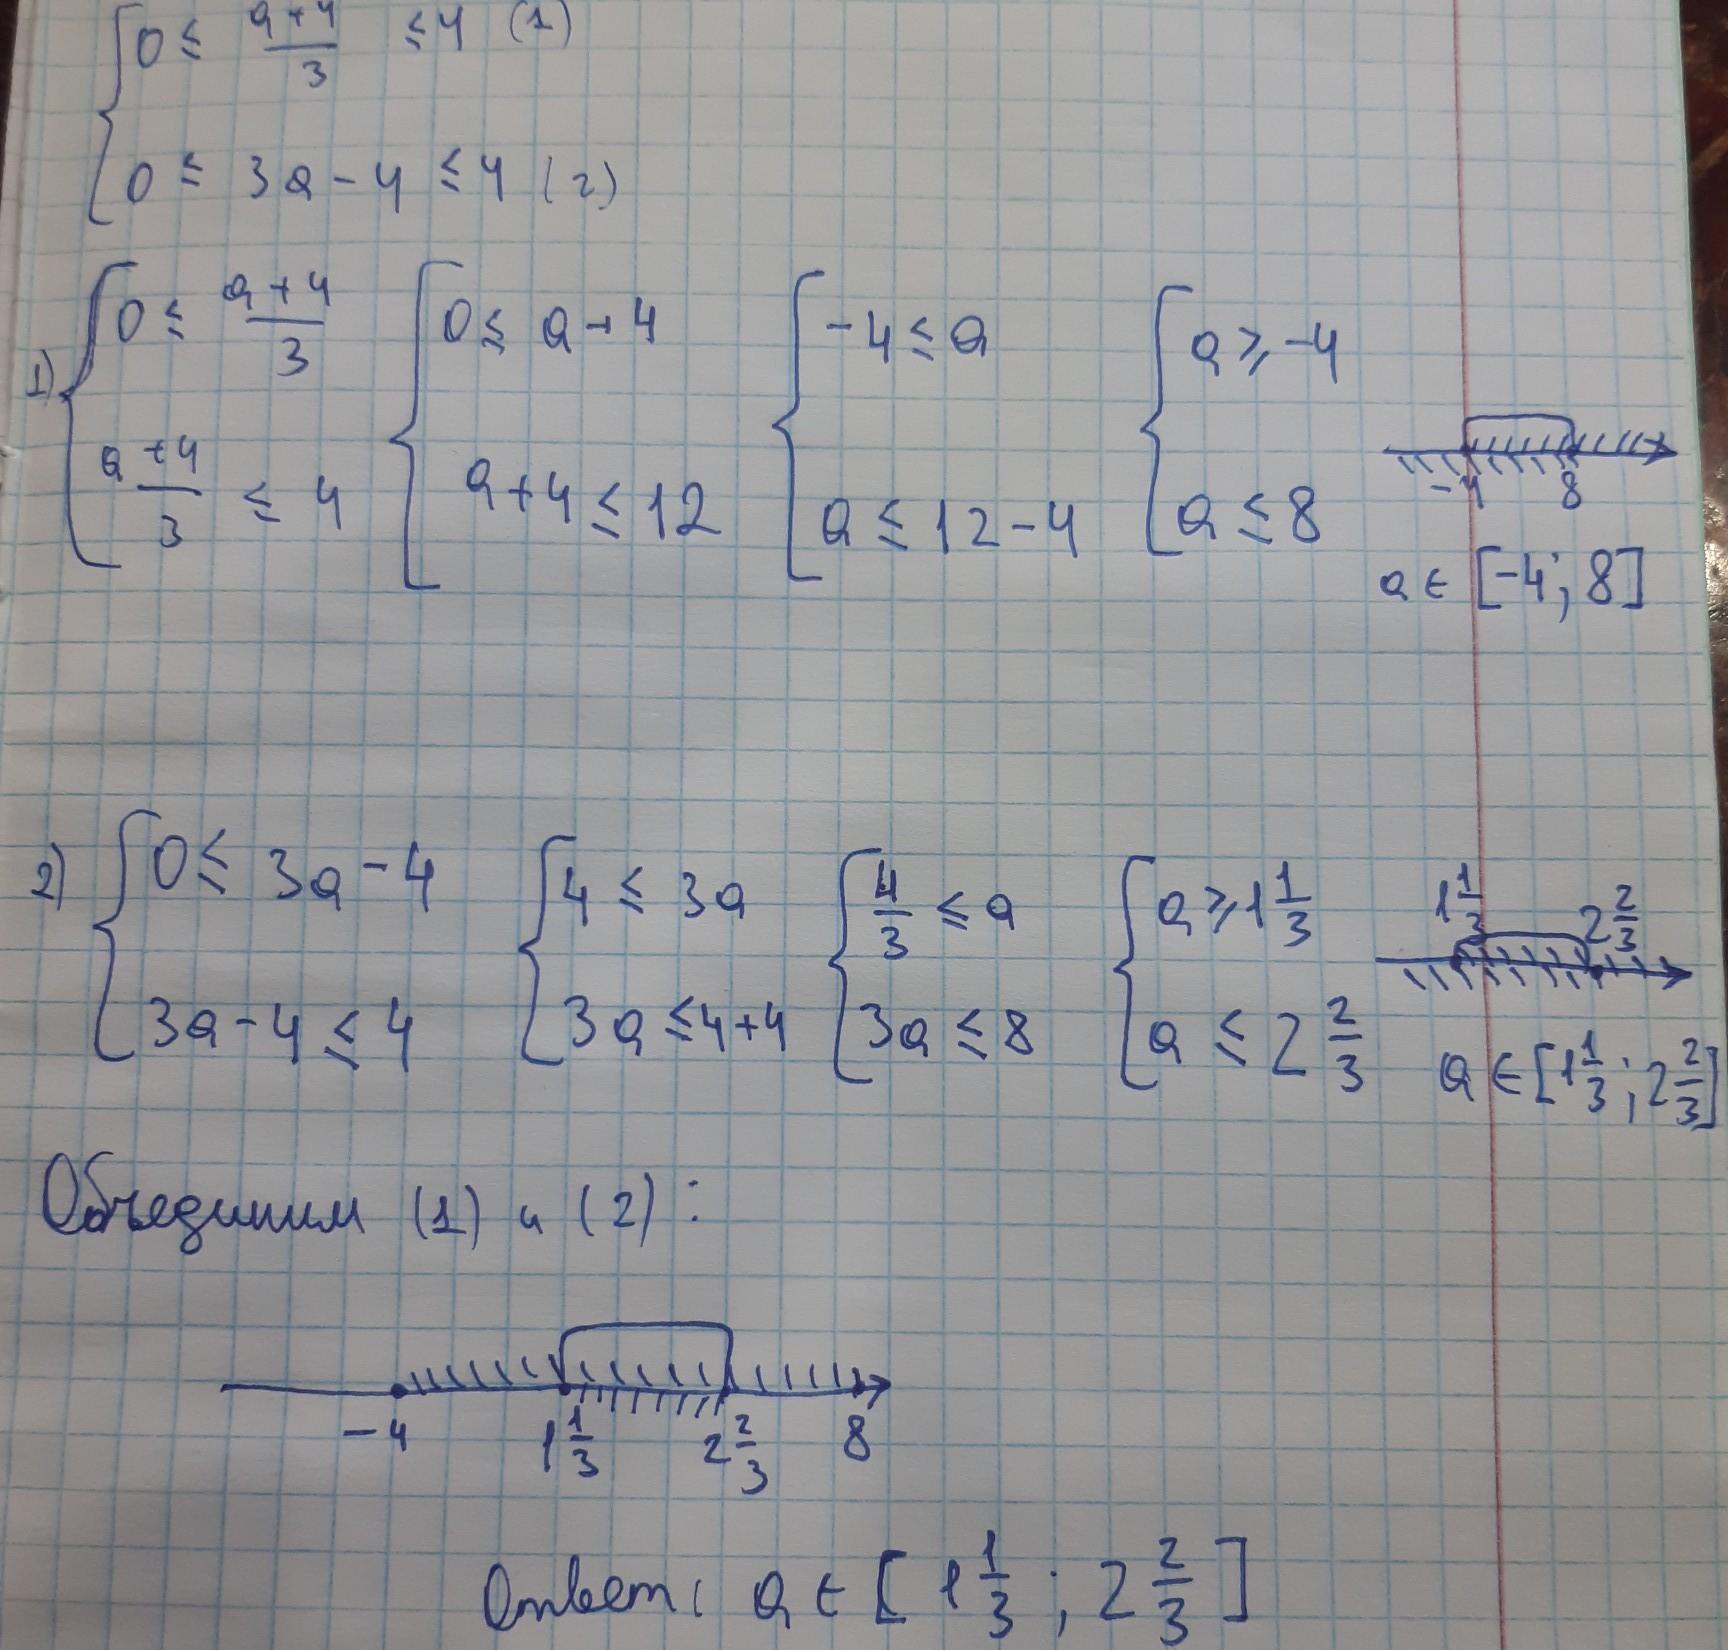 { 0 ≤ (a+4)/3 ≤ 4 (1)
{ 0 ≤ 3a - 4 ≤ 4 (2)
1) { 0 ≤ (a+4)/3 { 0 ≤ a + 4 { -4 ≤ a { a ≥ -4
{ (a+4)/3 ≤ 4 { a+4 ≤ 12 { a ≤ 12-4 { a ≤ 8
-4 8
a ∈ [-4; 8]
2) { 0 ≤ 3a - 4 { 4 ≤ 3a { 4/3 ≤ a { a ≥ 1 1/3
{ 3a - 4 ≤ 4 { 3a ≤ 4+4 { 3a ≤ 8 { a ≤ 2 2/3
1 1/3 2 2/3
a ∈ [1 1/3; 2 2/3]
Объединим (1) и (2):
-4 1 1/3 2 2/3 8
Ответ: a ∈ [1 1/3; 2 2/3]